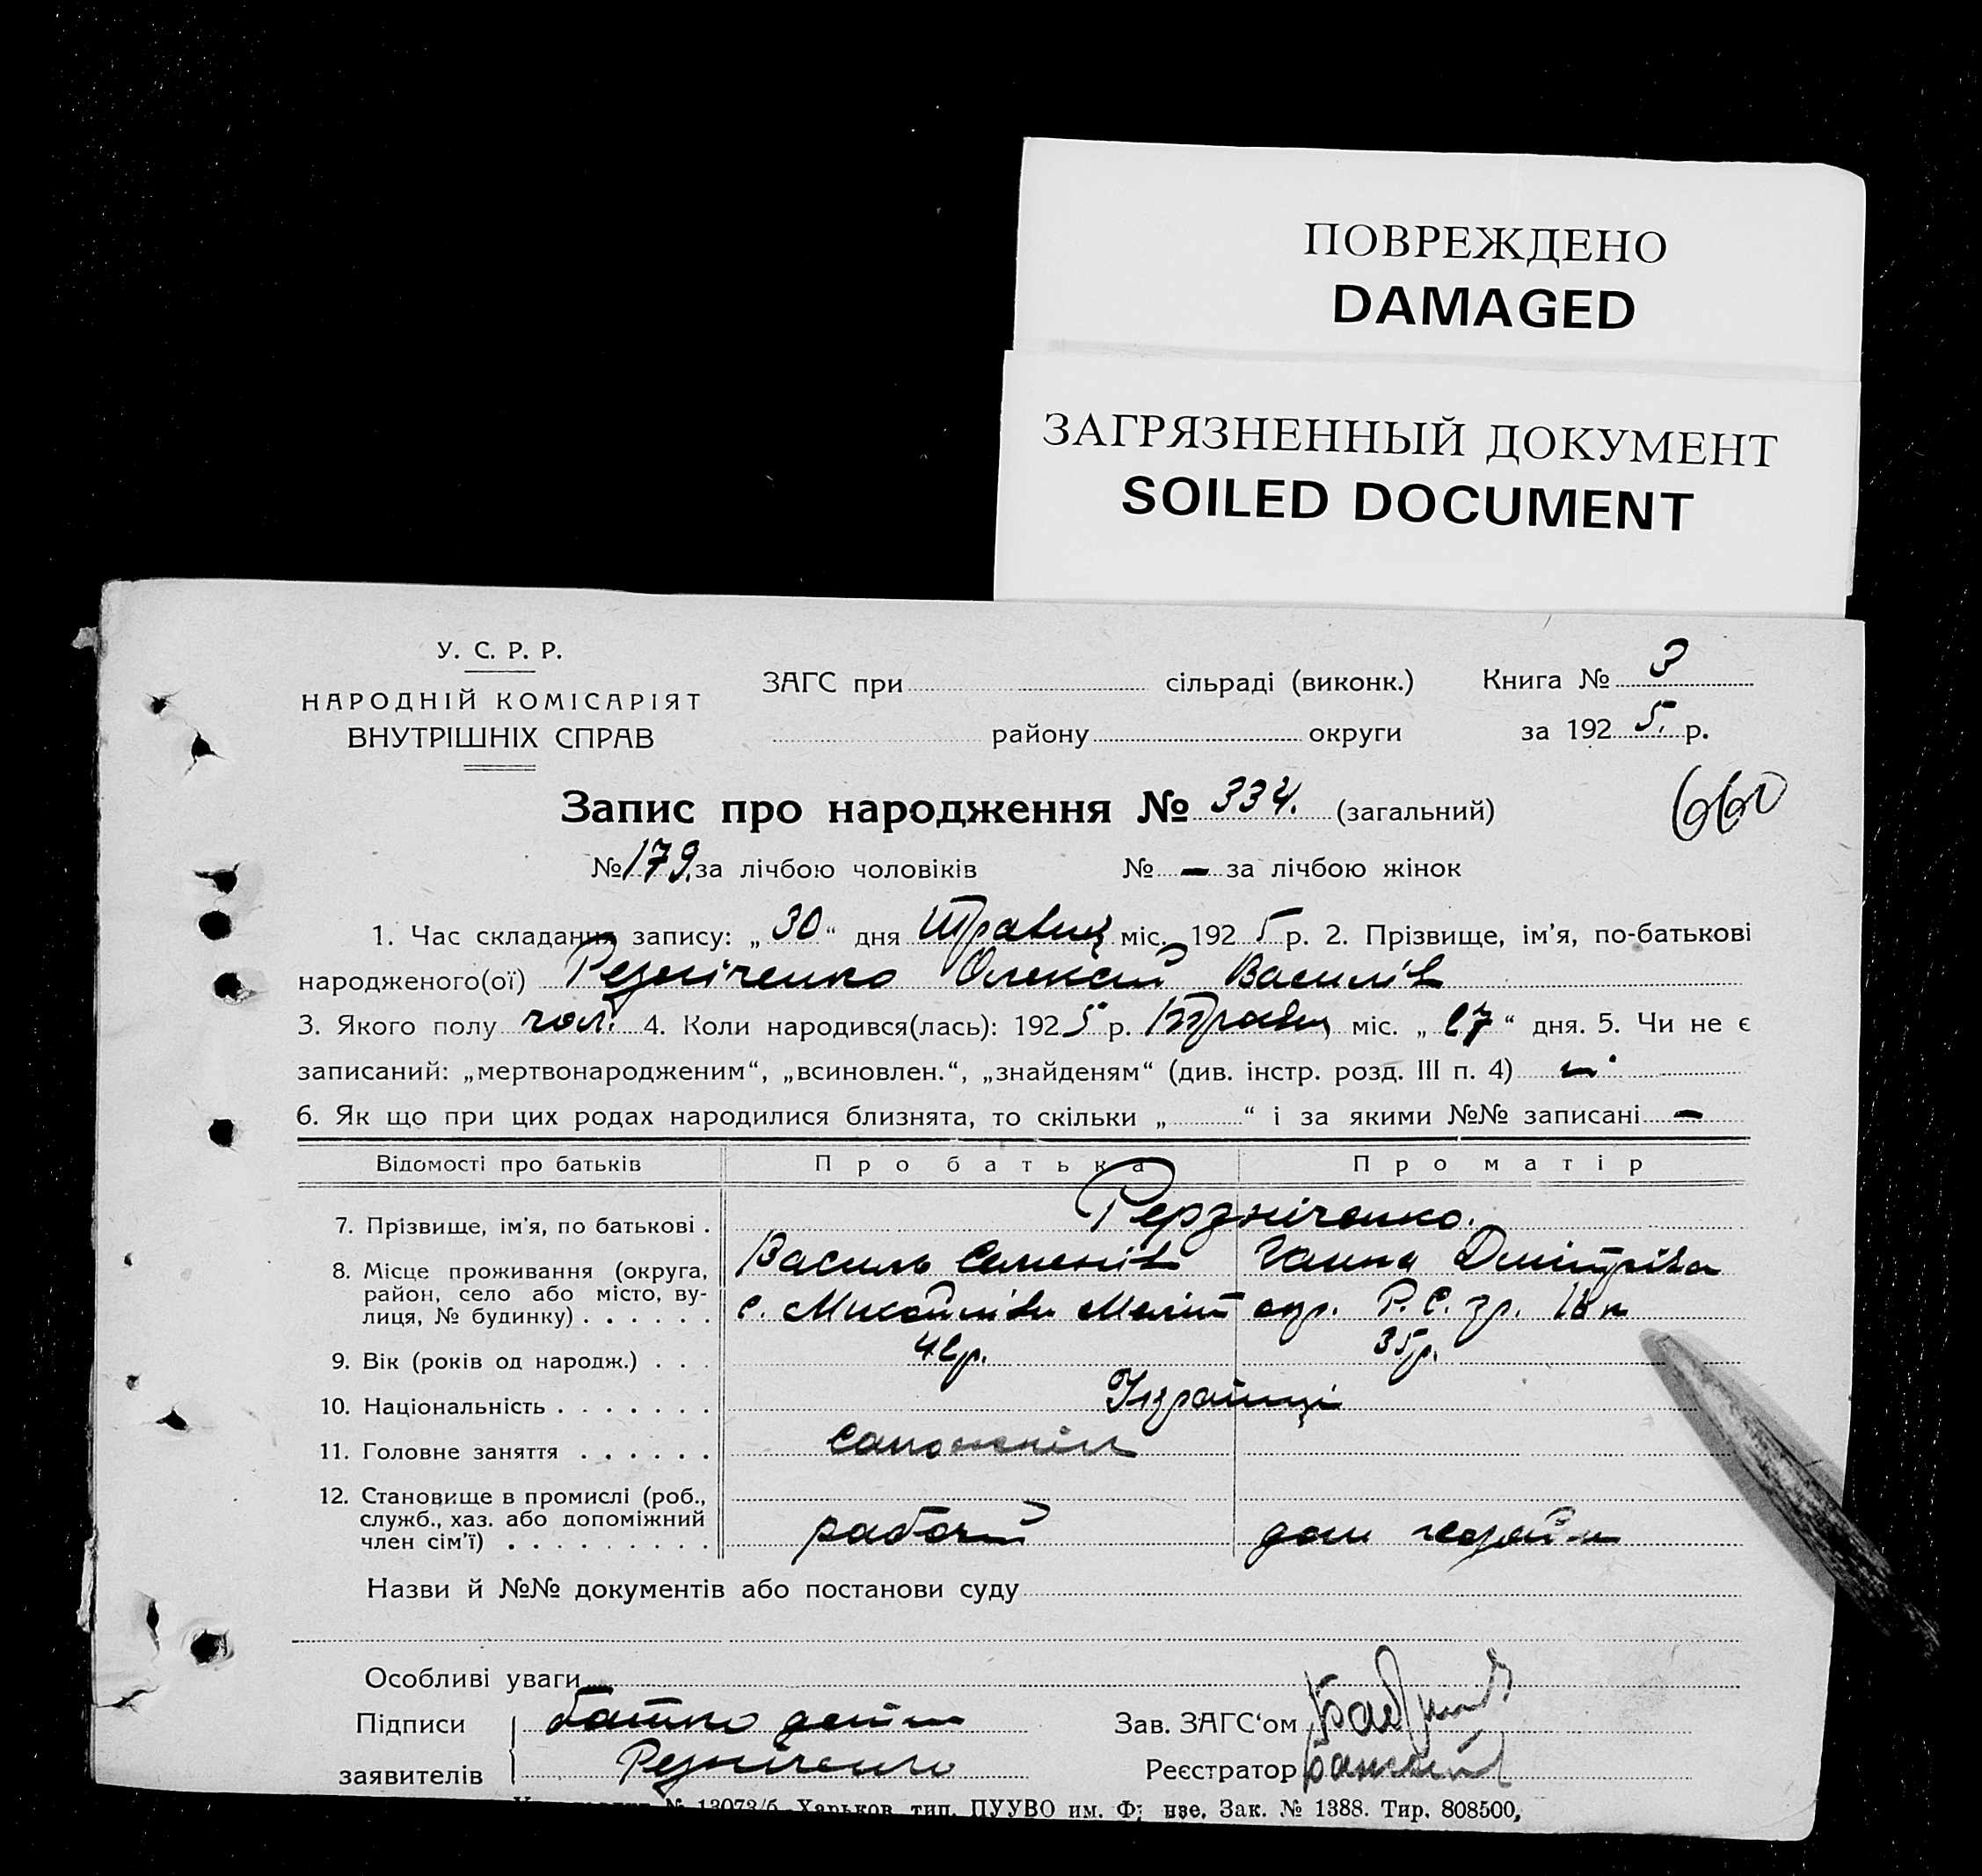 ПОВРЕЖДЕНО
DAMAGED
ЗАГРЯЗНЕННЫЙ ДОКУМЕНТ
SOILED DOCUMENT
У. С. Р. Р.
НАРОДНІЙ КОМІСАРІЯТ
ВНУТРІШНІХ СПРАВ
ЗАГС при сільраді (виконк.)
району округи
Книга № 3
за 192 5. р.
Запис про народження № 334. (загальний)
660
№ 179. за лічбою чоловіків № – за лічбою жінок
1. Час складання запису: „ 30 “ дня Травня міс. 192 5 р. 2. Прізвище, ім'я, по-батькові
народженого(ої) Резніченко Олексій Василів
3. Якого полу чол. 4. Коли народився(лась): 192 5 р. Травня міс. „ 27 “ дня. 5. Чи не є
записаний: „мертвонародженим“, „всиновлен.“, „знайденям“ (див. інстр. розд. III п. 4)
6. Як що при цих родах народилися близнята, то скільки „ “ і за якими №№ записані –
Відомості про батьків Про батька Про матір
7. Прізвище, ім'я, по батькові . Резніченко.
Василь Семенів Ганна Дмитрівна
8. Місце проживання (округа, район, село або місто, вулиця, № будинку) . . . . . . с. Михайлівки Меліт окр.
9. Вік (років од народж.) . . . 42р. 35р.
10. Національність . . . . . . . Українці
11. Головне заняття . . . . . . сапожнік
12. Становище в промислі (роб., служб., хаз. або допоміжний член сім'ї) . . . . . . . . . рабочій дом хозяйка
Назви й №№ документів або постанови суду
Особливі уваги
Підписи батько
заявителів Резніченко
Зав. ЗАГС'ом
Реєстратор
№ 13073/б. Харьков, тип. ПУУВО им. Фрунзе. Зак. № 1388. Тир. 808500,